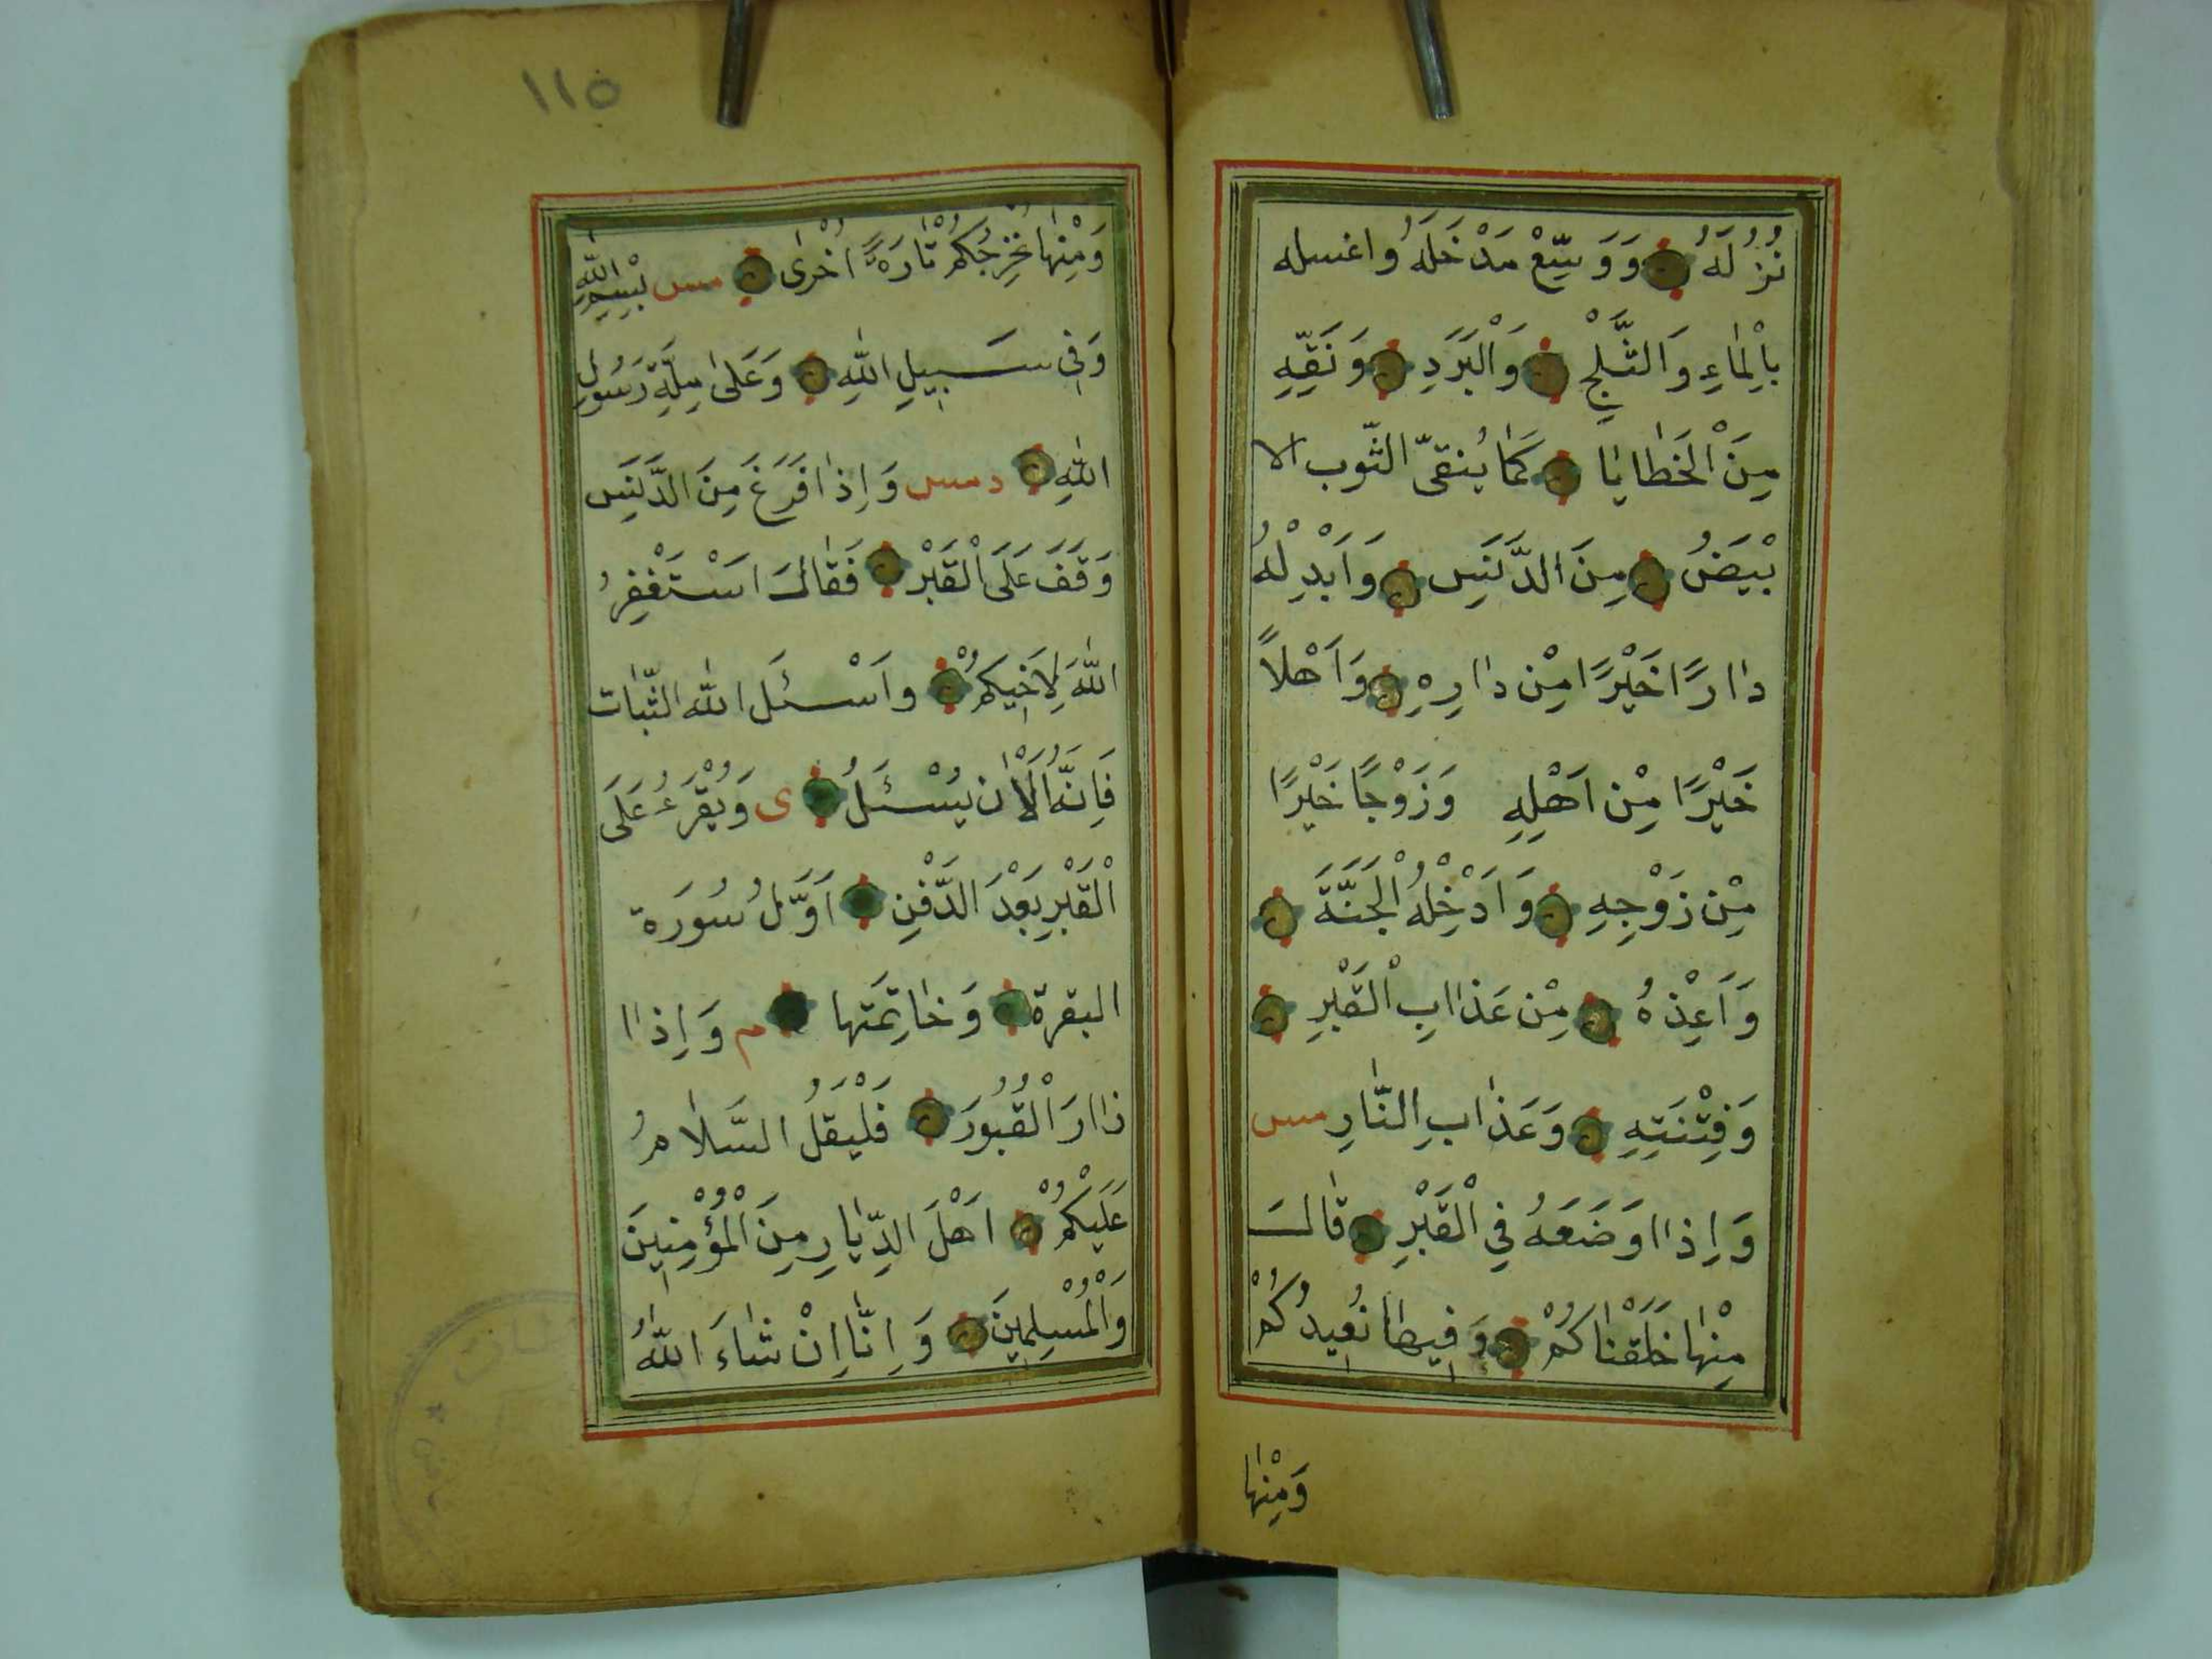 نُزُلَهُ وَوَسِّعْ مَدْخَلَهُ واغسله
بِالْمَاءِ وَالثَّلْجِ وَالْبَرَدِ وَنَقِّهِ
مِنَ الْخَطَايَا كَمَا يُنقَّى الثّوب الا
بْيَضُ مِنَ الدَّنَسِ وَاَبْدِلْهُ
دارًا خَيْرًا مِنْ دارِهِ وَاَهْلاً
خَيْرًا مِنْ اَهْلِهِ وَزَوْجًا خَيْرًا
مِنْ زَوْجِهِ وَاَدْخِلْهُ الْجَنَّةَ
وَاَعِذْهُ مِنْ عَذابِ الْقَبْرِ
وَفِتْنَتِهِ وَعَذابِ النَّارِ مس
وَاِذا وَضَعَهُ فِي الْقَبْرِ قالَ
مِنْهَا خَلَقْنَاكُمْ وَفِيهَا نُعِيدُكُمْ
وَمِنْهَا
١١٥
وَمِنْهَا نُخْرِجُكُمْ تَارَةً اُخْرٰى مس بِسْمِ اللّٰهِ
وَفِي سَبِيلِ اللّٰهِ وَعَلٰى مِلَّةِ رَسُولِ
اللّٰهِ دمس وَاِذا فَرَغَ مِنَ الدَّفَنِ
وَقَفَ عَلَى الْقَبْرِ فَقَالَ اسْتَغْفِرُ
اللّٰهَ لِاَخِيكُمْ واَسْئَلَ اللّٰه الثّبات
فَاِنَّهُ الْاٰنَ يُسْئَلُ ى وَيُقْرَءُ عَلَى
الْقَبْرِ بَعْدَ الدَّفْنِ اَوَّلُ سُورَة
البقرة وَخَاتِمَتها م وَاِذا
ذارَ الْقُبُورَ فَلْيَقُلْ السَّلامُ
عَلَيْكُمْ اَهْلَ الدِّيَارِ مِنَ الْمُؤْمِنِينَ
وَالْمُسْلِمِينَ وَاِنَّا اِنْ شَاءَ اللّٰهُ